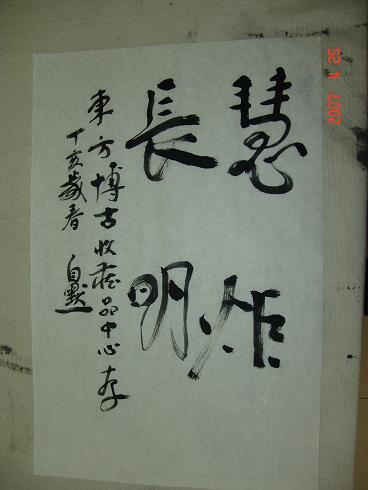 慧炬
長明
東方博古收藏品中心存
丁亥歲春 自默
2007 4 25